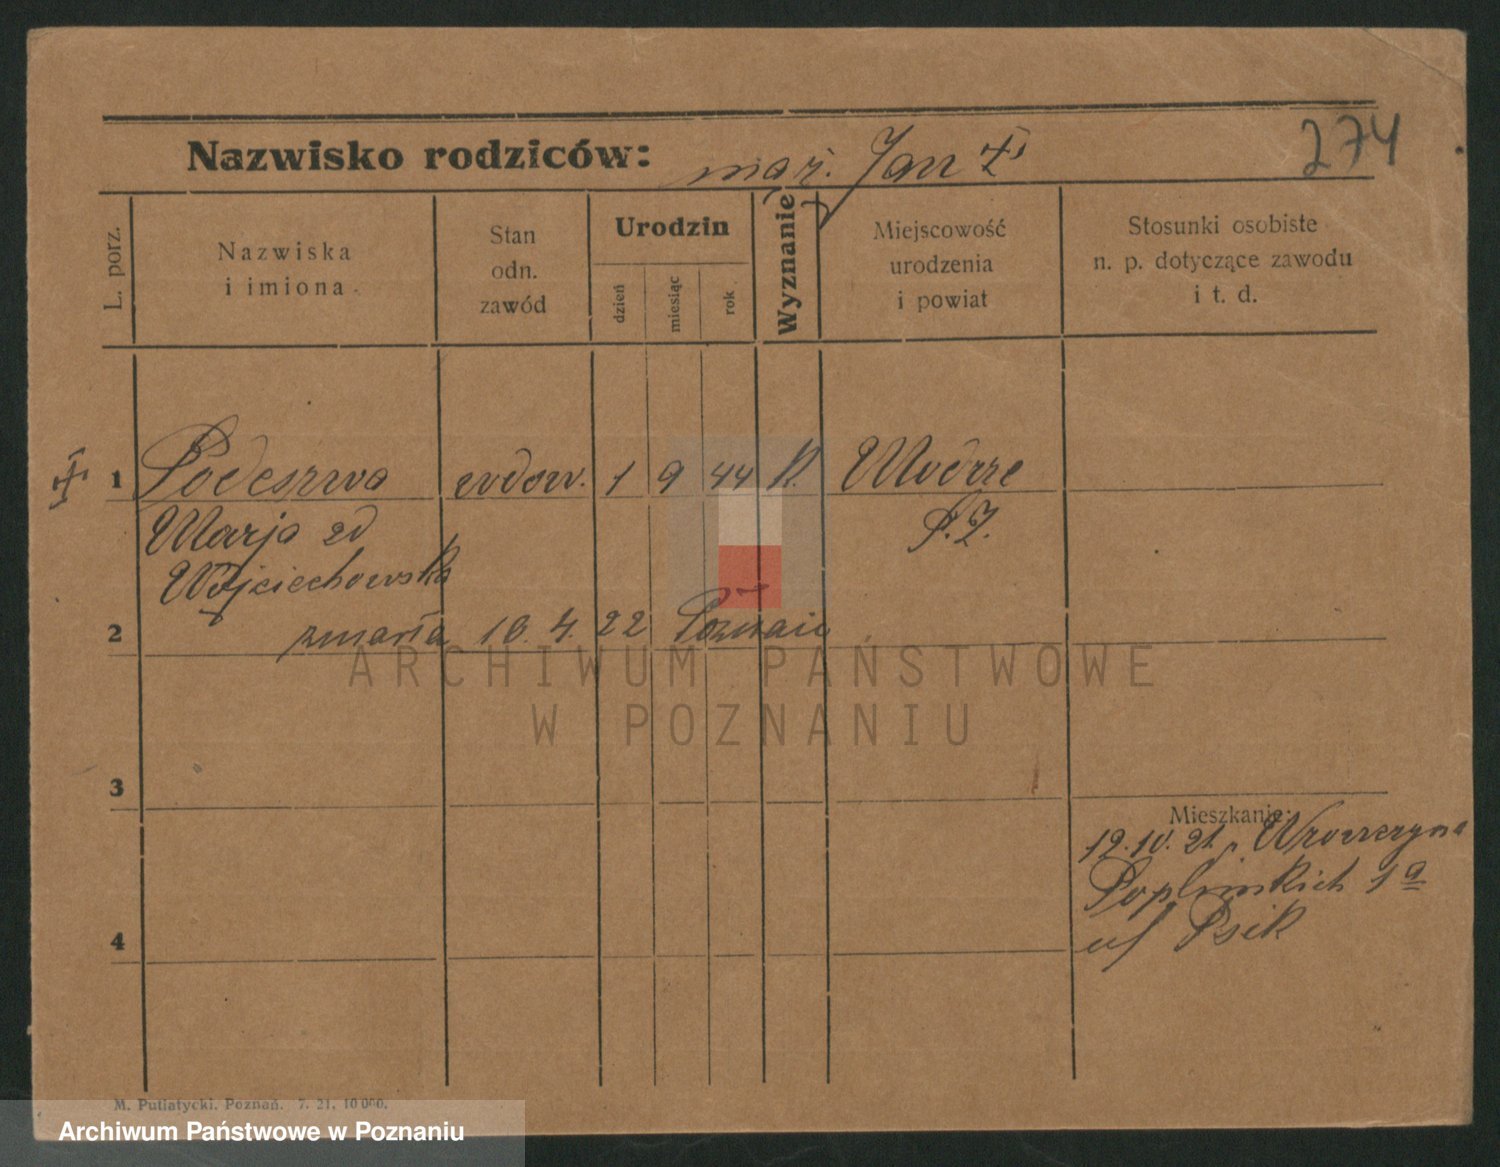 274
Nazwisko rodziców: maż. Jan
L. porz.
Nazwiska i imiona
Stan odn. zawód
Urodzin
dzień
miesiąc
rok
Wyznanie
Miejscowość urodzenia i powiat
Stosunki osobiste n. p. dotyczące zawodu i t. d.
1 Podeszwa wdow. 1 9 44 K. Modrze
Marja zd
Wojciechowska
2 zmarła 10. 4. 22 Poznań
ARCHIWUM PAŃSTWOWE
W POZNANIU
3
Mieszkanie:
12.10.21.
Poplińskich 1a
4
u/ Psik
M. Putiatycki. Poznań. 7. 21, 10 000.
Archiwum Państwowe w Poznaniu